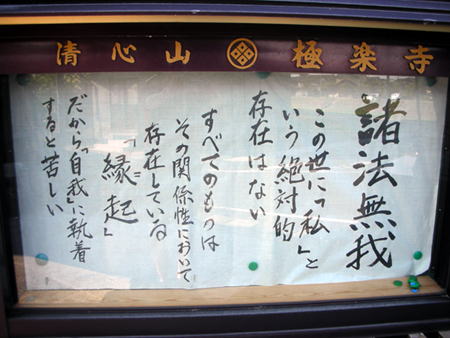 清心山 極楽寺
諸法無我
この世に「私」と
いう絶対的
存在はない
すべてのものは
その関係性において
存在している
「縁起」
だから「自我」に執着
すると苦しい